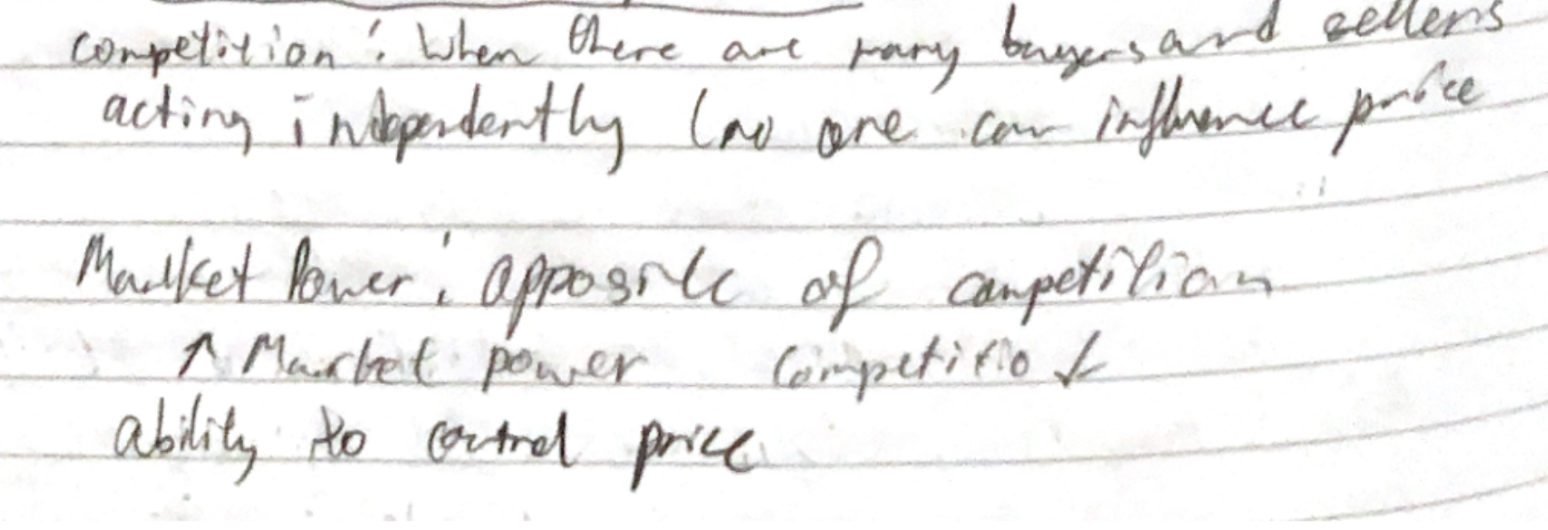 competition: When there are many buyers and sellers
acting independently (no one can influence price
Market Power: opposite of competition
↑ Market power competitio ↓
ability to control price